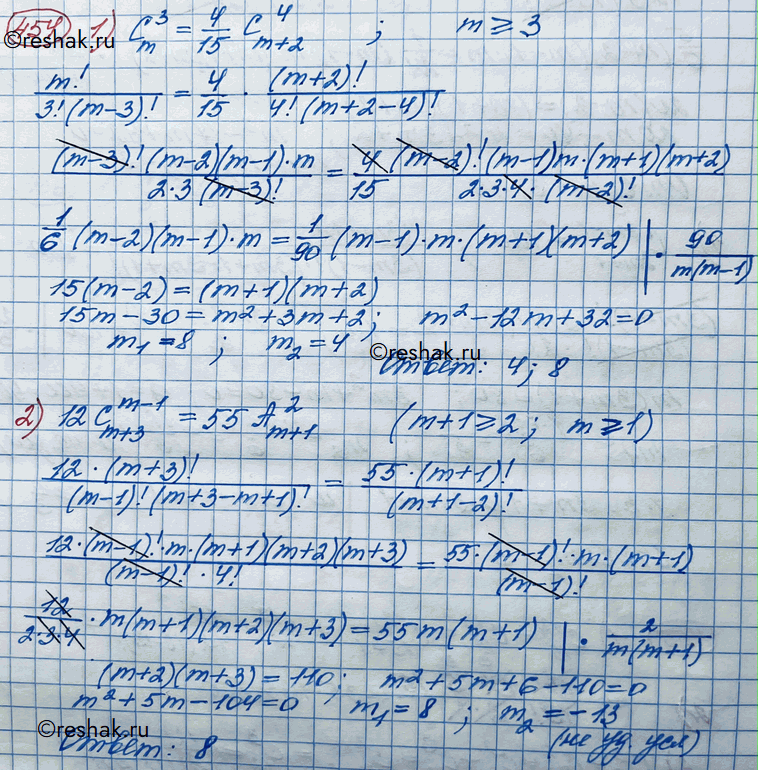 454 1) C_m^3 = 4/15 C_{m+2}^4 ; m ≥ 3
©reshak.ru
m!/(3!(m-3)!) = 4/15 · (m+2)!/(4!(m+2-4)!)
(m-3)!(m-2)(m-1)·m/(2·3(m-3)!) = 4/15 (m-2)!(m-1)m·(m+1)(m+2)/(2·3·4·(m-2)!)
1/6 (m-2)(m-1)·m = 1/90 (m-1)·m·(m+1)(m+2) | · 90/(m(m-1))
15(m-2) = (m+1)(m+2)
15m-30 = m²+3m+2; m²-12m+32=0
m₁=8 ; m₂=4
©reshak.ru
Ответ: 4; 8
2) 12 C_{m+3}^{m-1} = 55 A_{m+1}^2 (m+1≥2; m≥1)
12·(m+3)!/((m-1)!(m+3-m+1)!) = 55·(m+1)!/(m+1-2)!
12·(m-1)!·m·(m+1)(m+2)(m+3)/((m-1)!·4!) = 55·(m-1)!·m·(m+1)/(m-1)!
12/(2·3·4) · m(m+1)(m+2)(m+3) = 55m(m+1) | · 2/(m(m+1))
(m+2)(m+3) = 110; m²+5m+6-110=0
m²+5m-104=0 m₁=8 ; m₂=-13
©reshak.ru (не уд усл)
Ответ: 8